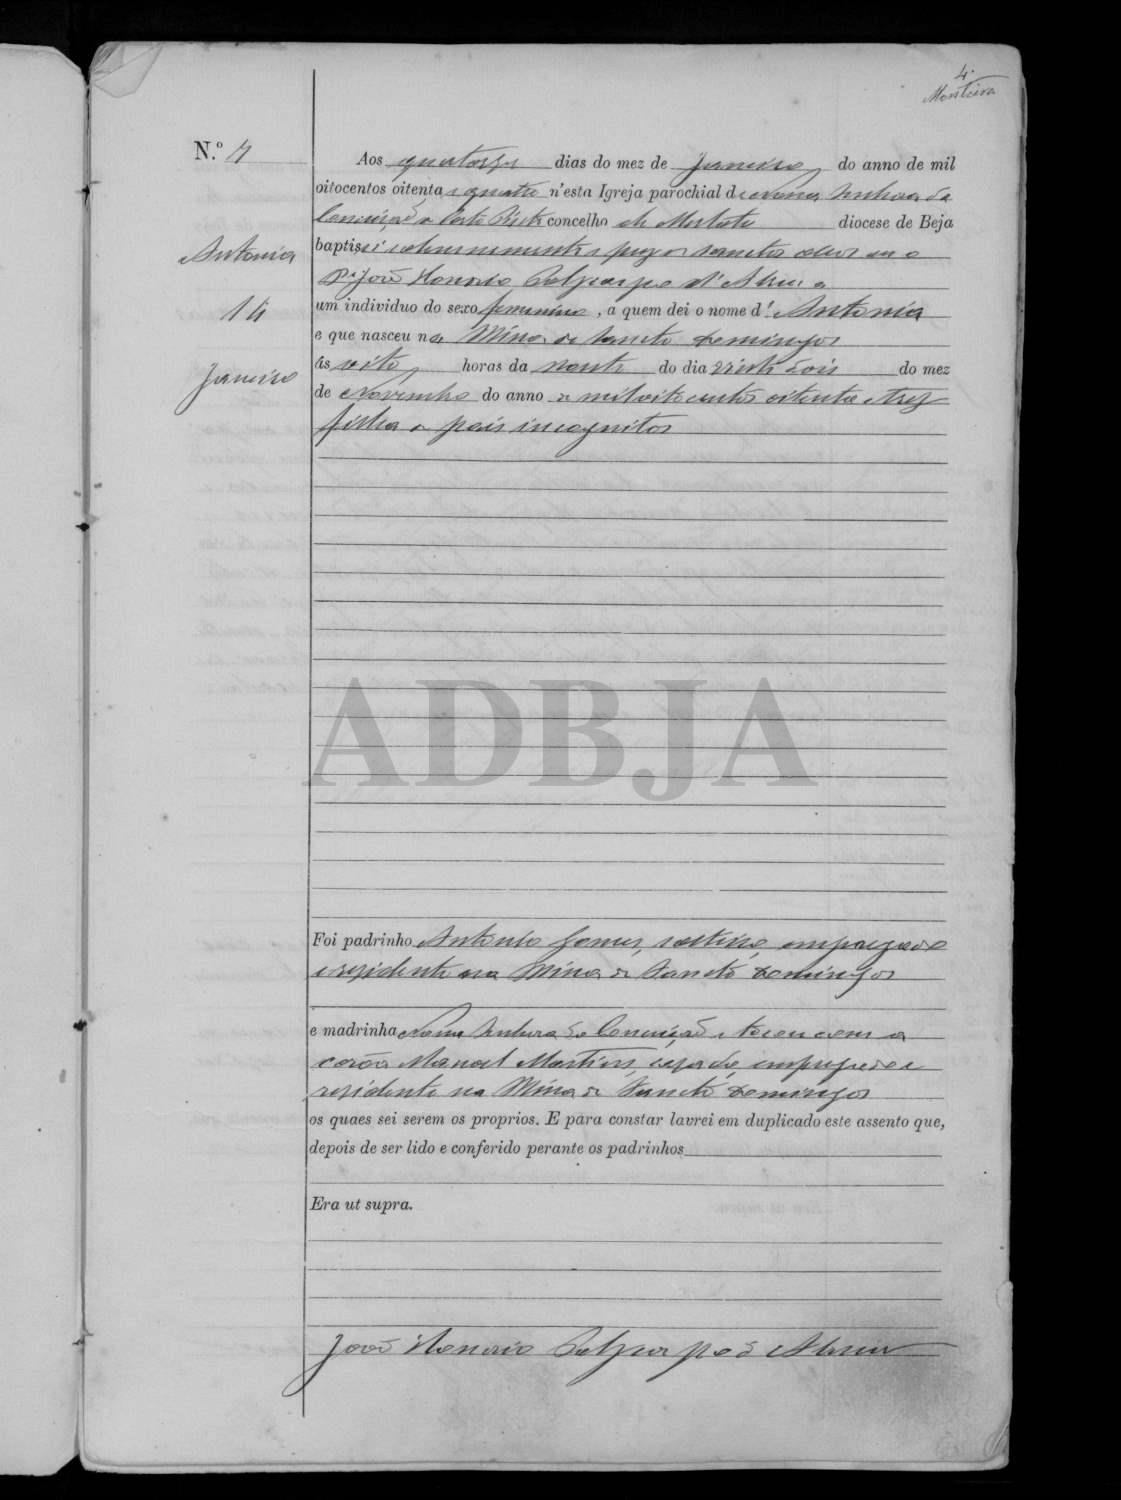 4
Monteiro
N.º 7
Antonia
14
Janeiro
Aos quatorze dias do mez de Janeiro do anno de mil
oitocentos oitenta e quatro n'esta Igreja parochial de Nossa Senhora da
Conceição a Corte Pinto concelho de Mertola diocese de Beja
baptisei solemnemente e puz os sanctos oleos eu o
P.e João Honorio d'
um individuo do sexo feminino, a quem dei o nome d' Antonia
e que nasceu na Mina de Sancto Domingos
ás oito horas da noute do dia vinte dois do mez
de Novembro do anno de mil oito centos oitenta e trez
filha de pais incognitos
ADBJA
Foi padrinho Antonio Gomes, solteiro, empregado
e residente na Mina de Sancto Domingos
e madrinha Nossa Senhora da Conceição e tocou com a
corôa Manoel Martins, casado, empregado e
residente na Mina de Sancto Domingos
os quaes sei serem os proprios. E para constar lavrei em duplicado este assento que,
depois de ser lido e conferido perante os padrinhos
Era ut supra.
João Honorio